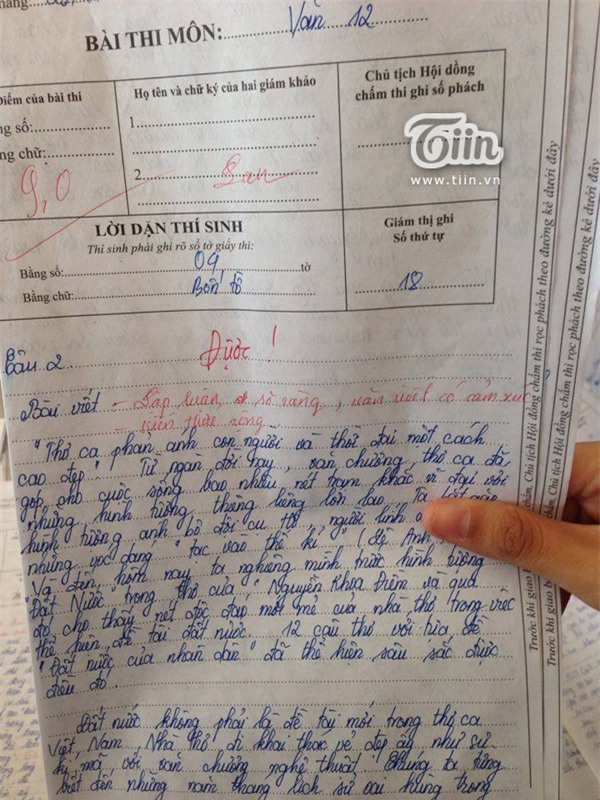 BÀI THI MÔN: Văn 12
Điểm của bài thi
Họ tên và chữ ký của hai giám khảo
Chủ tịch Hội đồng
chấm thi ghi số phách
1
2
9,0
Tiin
www.tiin.vn
LỜI DẶN THÍ SINH
Thí sinh phải ghi rõ số tờ giấy thi:
Bằng số: 04 tờ
Bằng chữ: Bốn tờ
Giám thị ghi
Số thứ tự
18
Câu 2
Được!
Bài viết
- Lập luận rõ ràng, văn viết có cảm xúc
- kiến thức rộng
"Thơ ca phản ánh con người và thời đại một cách
cao đẹp". Từ ngàn đời nay, văn chương, thơ ca đã
góp cho cuộc sống bao nhiêu nét trạm khắc vĩ đại với
những hình tượng thiêng liêng lớn lao. Ta
hình tượng anh bộ đội cụ Hồ, người lính
những vóc dáng "tạc vào thế kỉ" (Lê Anh
Và đến hôm nay ta nghiêng mình trước hình tượng
"Đất Nước" trong thơ của Nguyễn Khoa Điềm và qua
đó cho thấy nét độc đáo, mới mẻ của nhà thơ trong việc
thể hiện đề tài đất nước. 12 câu thơ với
"Đất nước của nhân dân" đã thể hiện sâu sắc được
điều đó.
Đất nước không phải là đề tài mới trong thơ ca
Việt Nam. Nhà thơ đi khai thác vẻ đẹp ấy như sứ
với văn chương nghệ thuật. Chúng ta từng
biết đến những năm tháng lịch sử oai hùng trong
Trước khi giao
Chủ tịch Hội đồng chấm thi rọc phách theo đường kẻ dưới đây
Trước khi giao
Chủ tịch Hội đồng chấm thi rọc phách theo đường kẻ dưới đây